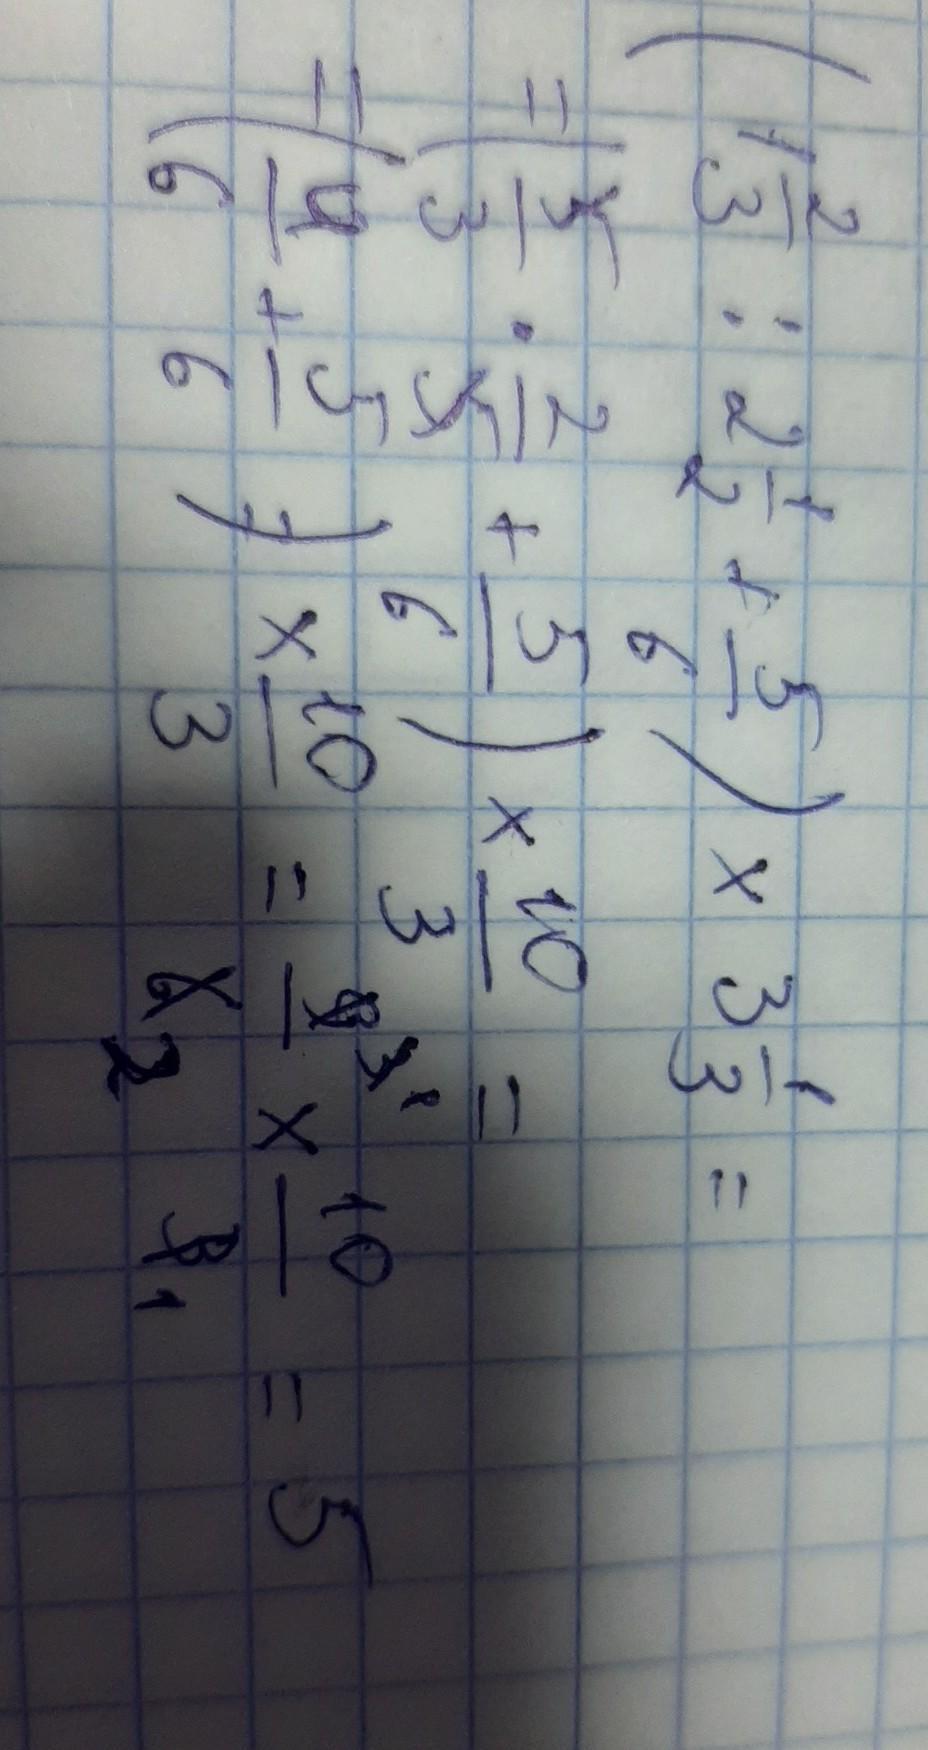 (1 2/3 : 2 1/2 + 5/6) × 3 1/3 =
= (5/3 · 2/5 + 5/6) × 10/3 =
= (4/6 + 5/6) × 10/3 = 9 3 1/6 2 × 10/3 1 = 5